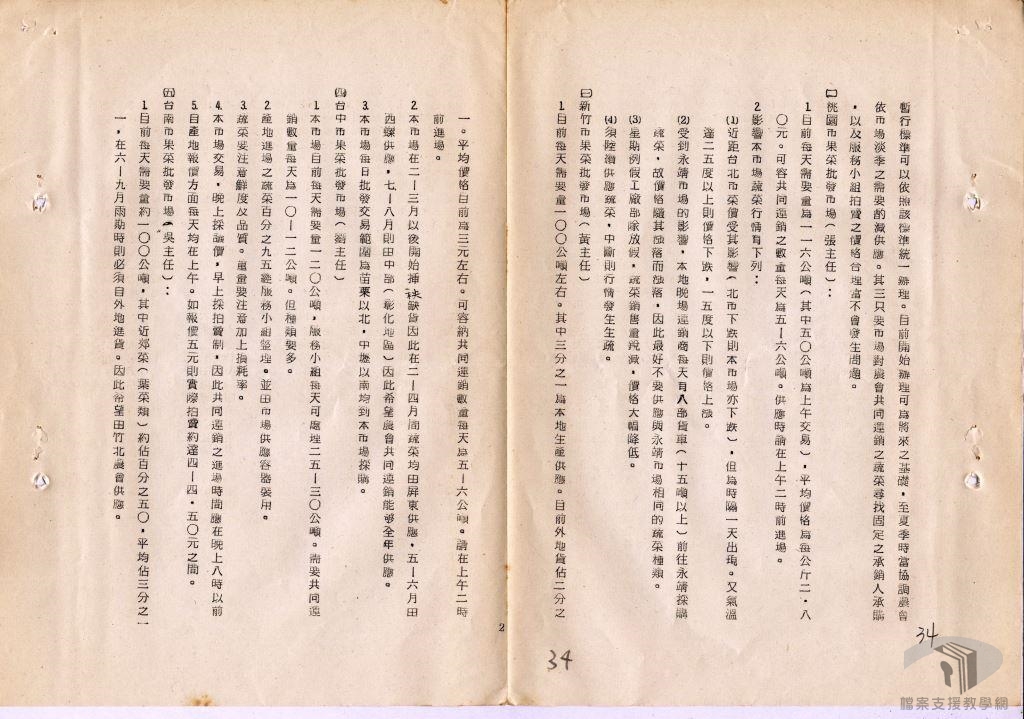 暫行標準可以依照該標準統一辦理。目前開始辦理可為將來之基礎,至夏季時當協調農會
依市場淡季之需要酌減供應。其三只要市場對農會共同運銷之蔬菜尋找固定之承銷人承購
,以及服務小組拍賣之價格合理當不會發生問題。
㈡桃園市果菜批發市場(張主任):
1目前每天需要量為一一六公噸(其中五〇公噸為上午交易),平均價格為每公斤二・八
〇元。可容共同運銷之數量每天為五-六公噸。供應時請在上午二時前進場。
2影響本市場蔬菜行情有下列:
⑴近距台北市菜價受其影響(北市下跌則本市場亦下跌),但為時隔一天出現。又氣溫
達二五度以上則價格下跌,一五度以下則價格上漲。
⑵受到永靖市場的影響,本地晚場運銷商每天有八部貨車(十五噸以上)前往永靖採購
蔬菜,故價格隨其漲落而漲落,因此最好不要供應與永靖市場相同的蔬菜種類。
⑶星期例假工廠部隊放假,蔬菜銷售量銳減,價格大幅降低。
⑷須陸續供應蔬菜,中斷則行情發生生疏。
㈢新竹市果菜批發市場(黃主任)
1目前每天需要量一〇〇公噸左右。其中三分之一為本地生產供應。目前外地貨佔二分之
34
一。平均價格目前為三元左右。可容納共同運銷數量每天為五-六公噸。請在上午二時
前進場。
2本市場在二-三月以後開始插秧缺貨因此在二-四月間蔬菜均由屏東供應,五-六月由
西螺供應,七-八月則由中部(彰化地區)因此希望農會共同運銷能够全年供應。
3本市場每日批發交易範圍為苗栗以北,中壢以南均到本市場採購。
㈣台中市果菜批發市場(劉主任)
1本市場目前每天需要量一二〇公噸,服務小組每天可處理二五-三〇公噸。需要共同運
銷數量每天為一〇-一二公噸。但種類要多。
2產地進場之蔬菜百分之九五經服務小組整理。並由市場供應容器裝用。
3蔬菜要注意鮮度及品質。重量要注意加上損耗率。
4本市場交易,晚上採議價,早上採拍賣制,因此共同運銷之進場時間應在晚上八時以前
5自產地報價方面每天均在上午。如報價五元則實際拍賣約達四-四・五〇元之間。
㈤台南市果菜批發市場(吳主任):
1目前每天需要量約一〇〇公噸,其中近郊菜(葉菜類)約佔百分之五〇,平均佔三分之一
一,在六-九月雨期時則必須自外地進貨。因此希望由竹北農會供應。
2
34
檔案支援教學網